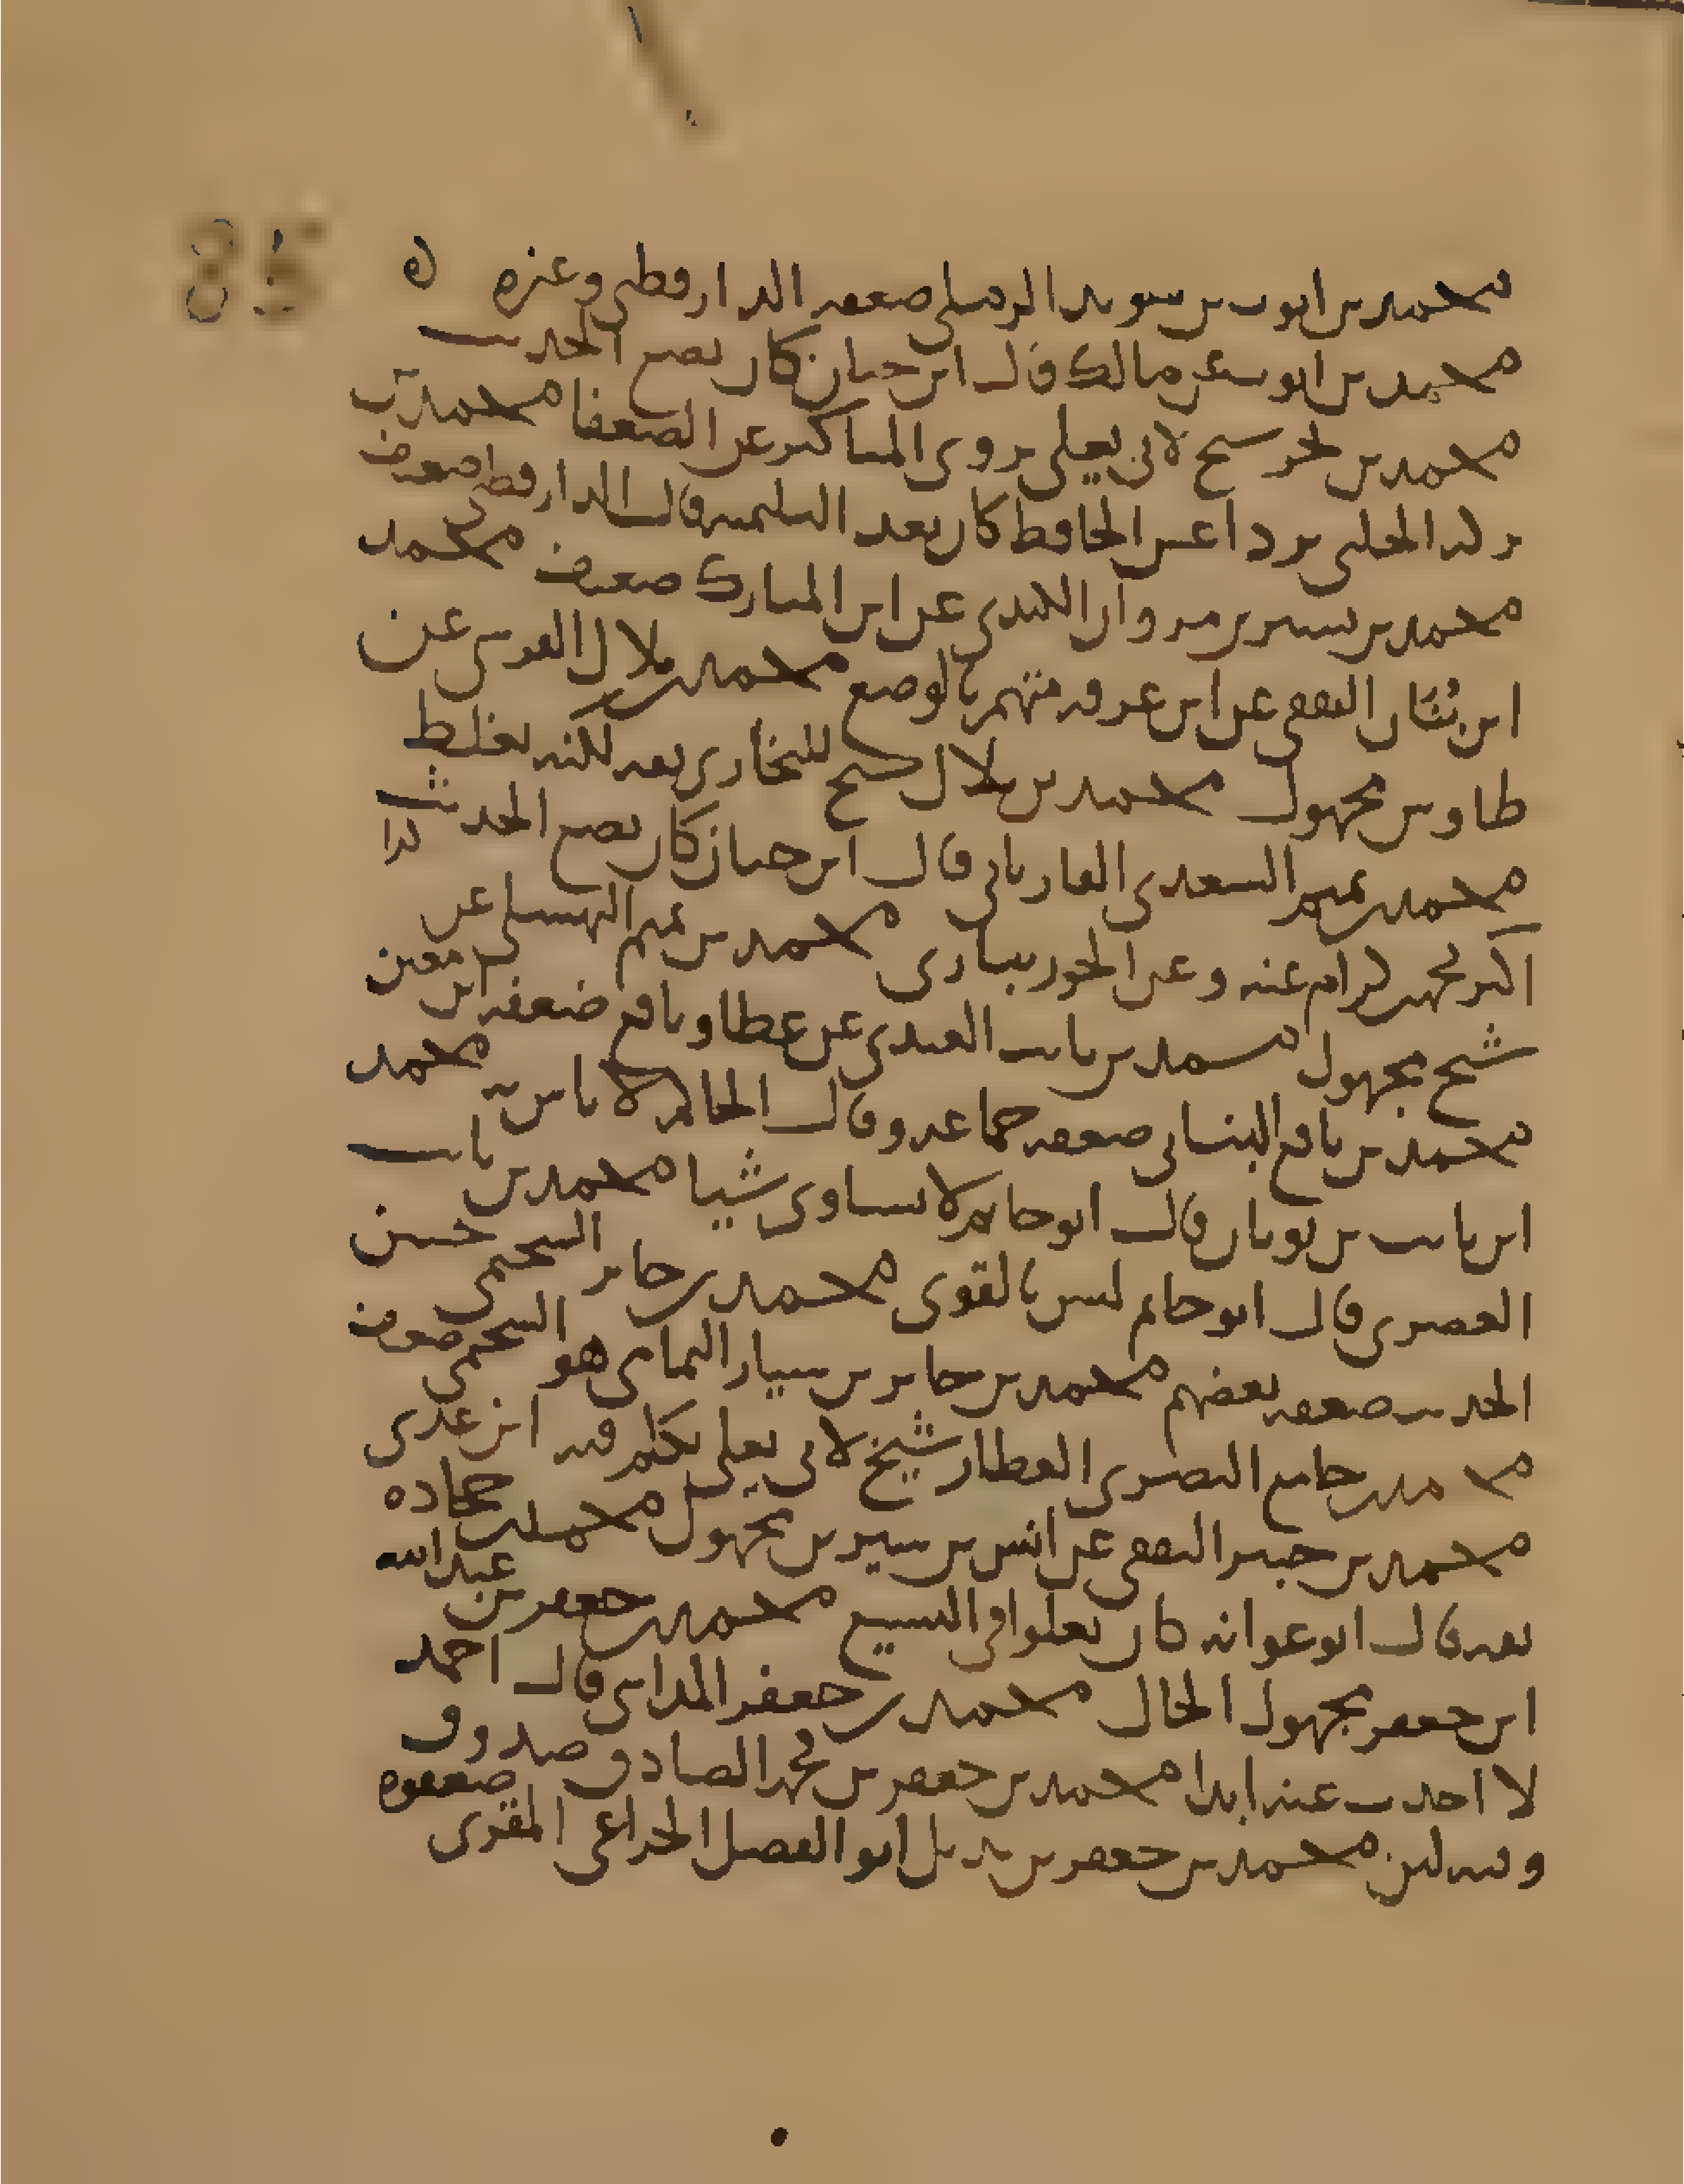 85
محمد بن ايوب بن سويد الرملي ضعفه الدارقطني وغيره ه
محمد بن ايوب عن مالك قال ابن حبان كان يضع الحديث
محمد بن بحر شيخ لابي يعلى يروي المناكير عن الضعفا محمد بن
بركه الحلبي برداعس الحافظ كان بعد الثلثمية قال الدارقطني ضعيف
محمد بن بشير بن مروان الكندي عن ابن المبارك ضعيف محمد
ابن بُنَان الثقفي عن ابن عرفه متهم بالوضع محمد بن بلال القرشي عن
طاوس مجهول محمد بن بلال شيخ للبخاري ثقه لكنه يغلط
محمد بن تميم السعدي الفاريابي قال ابن حبان كان يضع الحديث
اكثر محمد بن كرام عنه وعن الجويباري محمد بن تميم النهشلي عن
شيخ مجهول محمد بن ثابت العبدي عن عطا ونافع ضعفه ابن معين
محمد بن ثابت البناني ضعفه جماعه وقال الحاكم لا باس به محمد
ابن ثابت بن ثوبان قال ابو حاتم لا يساوي شيا محمد بن ثابت
العصري قال ابو حاتم ليس بالقوي محمد بن جابر السحيمي حسن
الحديث ضعفه بعضهم محمد بن جابر بن سيار اليمامي هو السحيمي ضعيف
محمد بن جامع البصري العطار شيخ لابي يعلى تكلم فيه ابن عدي
محمد بن حبير الثقفي عن انس بن سيرين مجهول محمد بن جحاده
ثقه قال ابو عوانه كان يغلوا في التشيع محمد بن جعفر بن عبد الله
ابن جعفر مجهول الحال محمد بن جعفر المدايني قال احمد
لا احدث عنه ابدا محمد بن جعفر بن محمد الصادق صدوق
وفيه لين محمد بن جعفر بن بديل ابو الفضل الخزاعي المقري ضعفوه